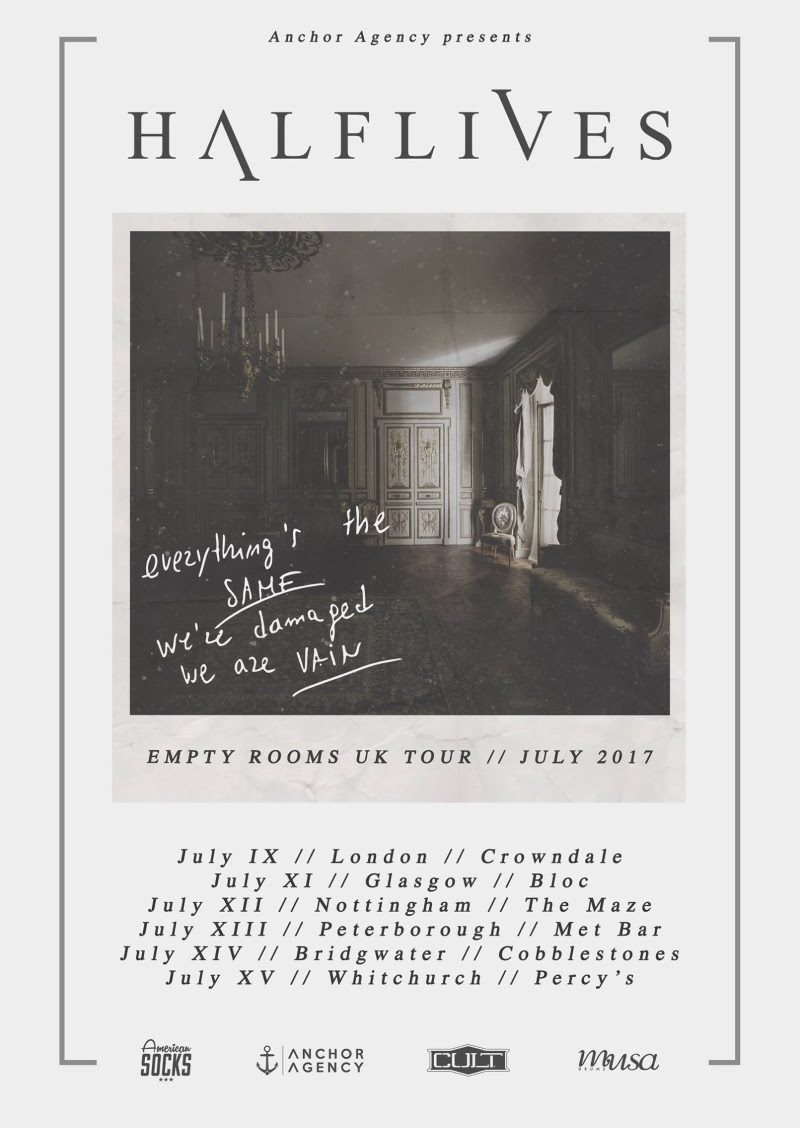 Anchor Agency presents
HALFLIVES
everything's the
SAME
we're damaged
we are VAiN
EMPTY ROOMS UK TOUR // JULY 2017
July IX // London // Crowndale
July XI // Glasgow // Bloc
July XII // Nottingham // The Maze
July XIII // Peterborough // Met Bar
July XIV // Bridgwater // Cobblestones
July XV // Whitchurch // Percy’s
American
SOCKS
ANCHOR
AGENCY
CULT
Musa